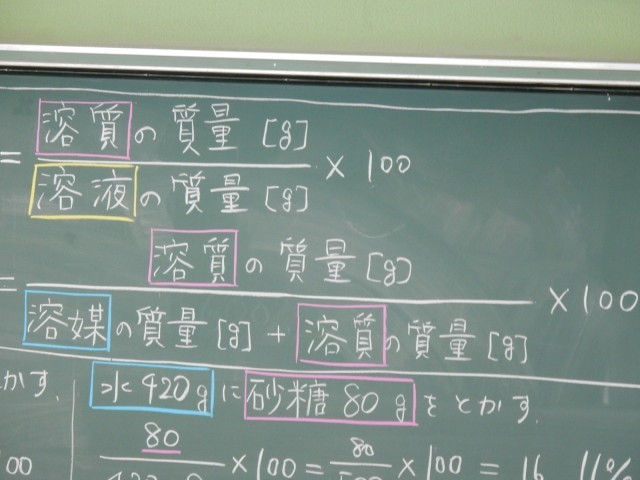 = 溶質の質量[g]
溶液の質量[g]
× 100
= 溶質の質量[g]
溶媒の質量[g] + 溶質の質量[g]
× 100
かす.
水420gに砂糖80gをとかす.
80
× 100 = 80
× 100 = 16
11%
00